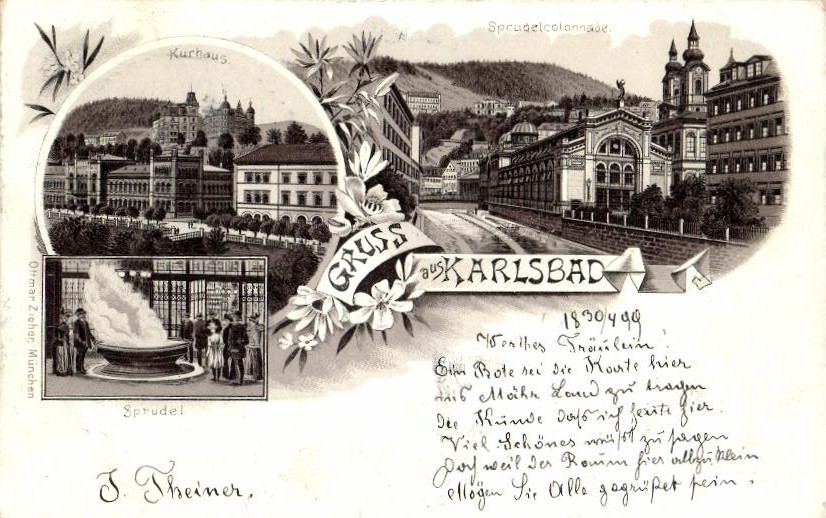 Sprudelcolonnade.
Kurhaus.
GRUSS
aus KARLSBAD
Ottmar Zieher, München
Sprudel
1830/4 99
Werthes Fräulein!
Ein Bote sei die Karte hier
ins Mähr. Land zu tragen
die Kunde daß ich heute hier.
Viel Schönes wüßt zu sagen
Doch weil der Raum hier allzuklein
Mögen Sie Alle gegrüßet sein.
J. Theiner.